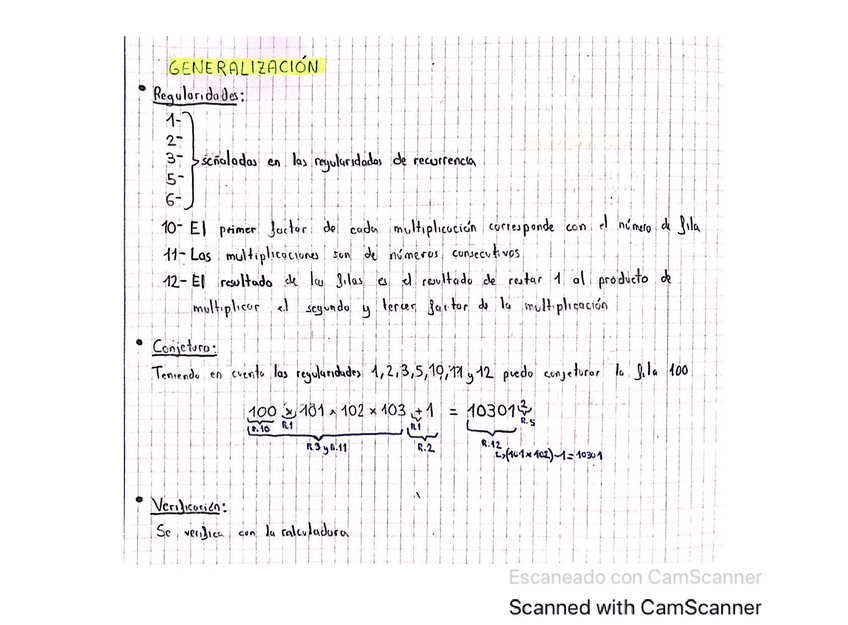 GENERALIZACIÓN
• Regularidades:
1-
2-
3- señaladas en las regularidades de recurrencia
5-
6-
10- El primer factor de cada multiplicación corresponde con el número de fila
11- Las multiplicaciones son de números consecutivos
12- El resultado de las filas es el resultado de restar 1 al producto de
multiplicar el segundo y tercer factor de la multiplicación
• Conjetura:
Teniendo en cuenta las regularidades 1,2,3,5,10,11 y 12 puedo conjeturar la fila 100
100 x 101 x 102 x 103 + 1 = 10301²
R.10 R.1 R.1 R.5
R.3 y R.11 R.2 R.12
(101x102)-1=10301
• Verificación:
Se verifica con la calculadora
Escaneado con CamScanner
Scanned with CamScanner